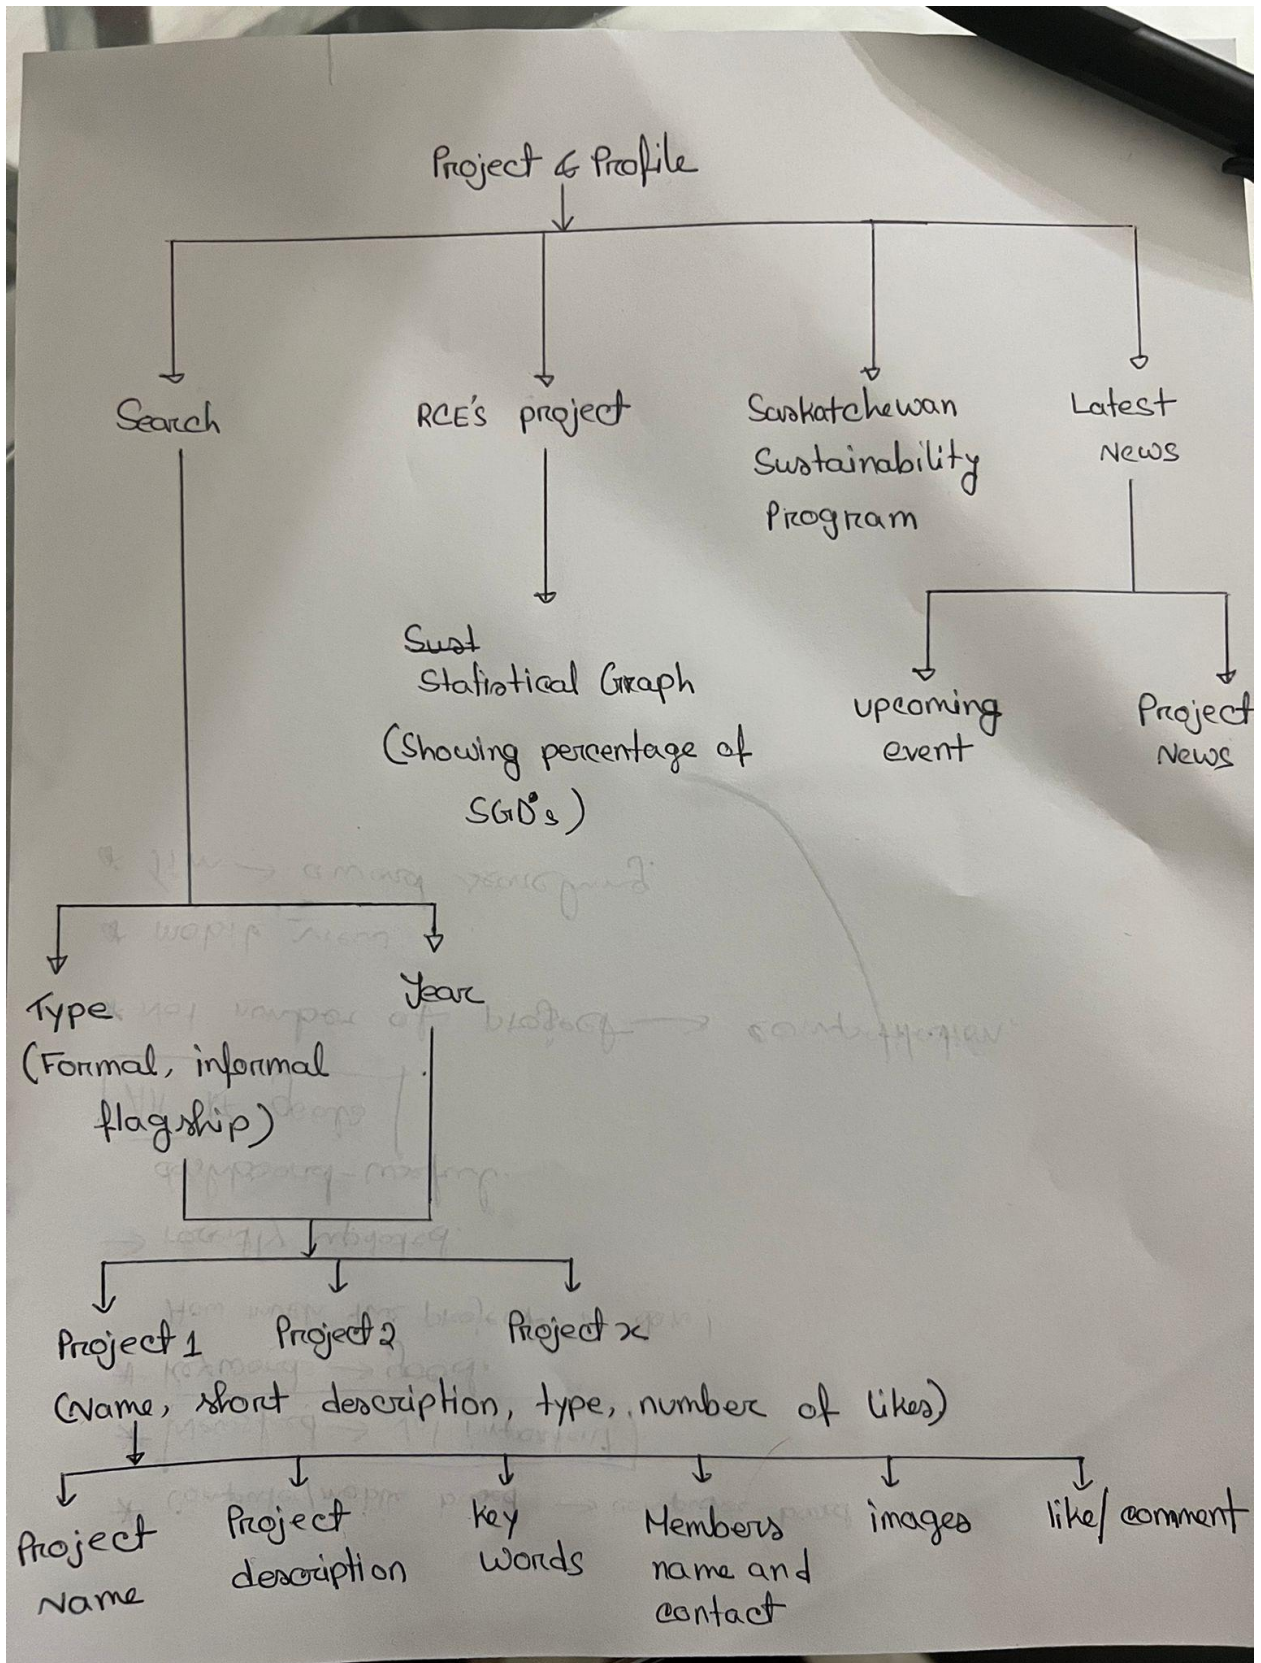 Project & Profile
Search
RCE's project
Saskatchewan
Sustainability
Program
Latest
News
Sust
Statistical Graph
(Showing percentage of
SGD's)
upcoming
event
Project
News
Type
(Formal, informal
flagship)
Year
Project 1
Project 2
Project x
(Name, short description, type, number of likes)
Project
Name
Project
description
Key
words
Members
name and
contact
images
like/comment